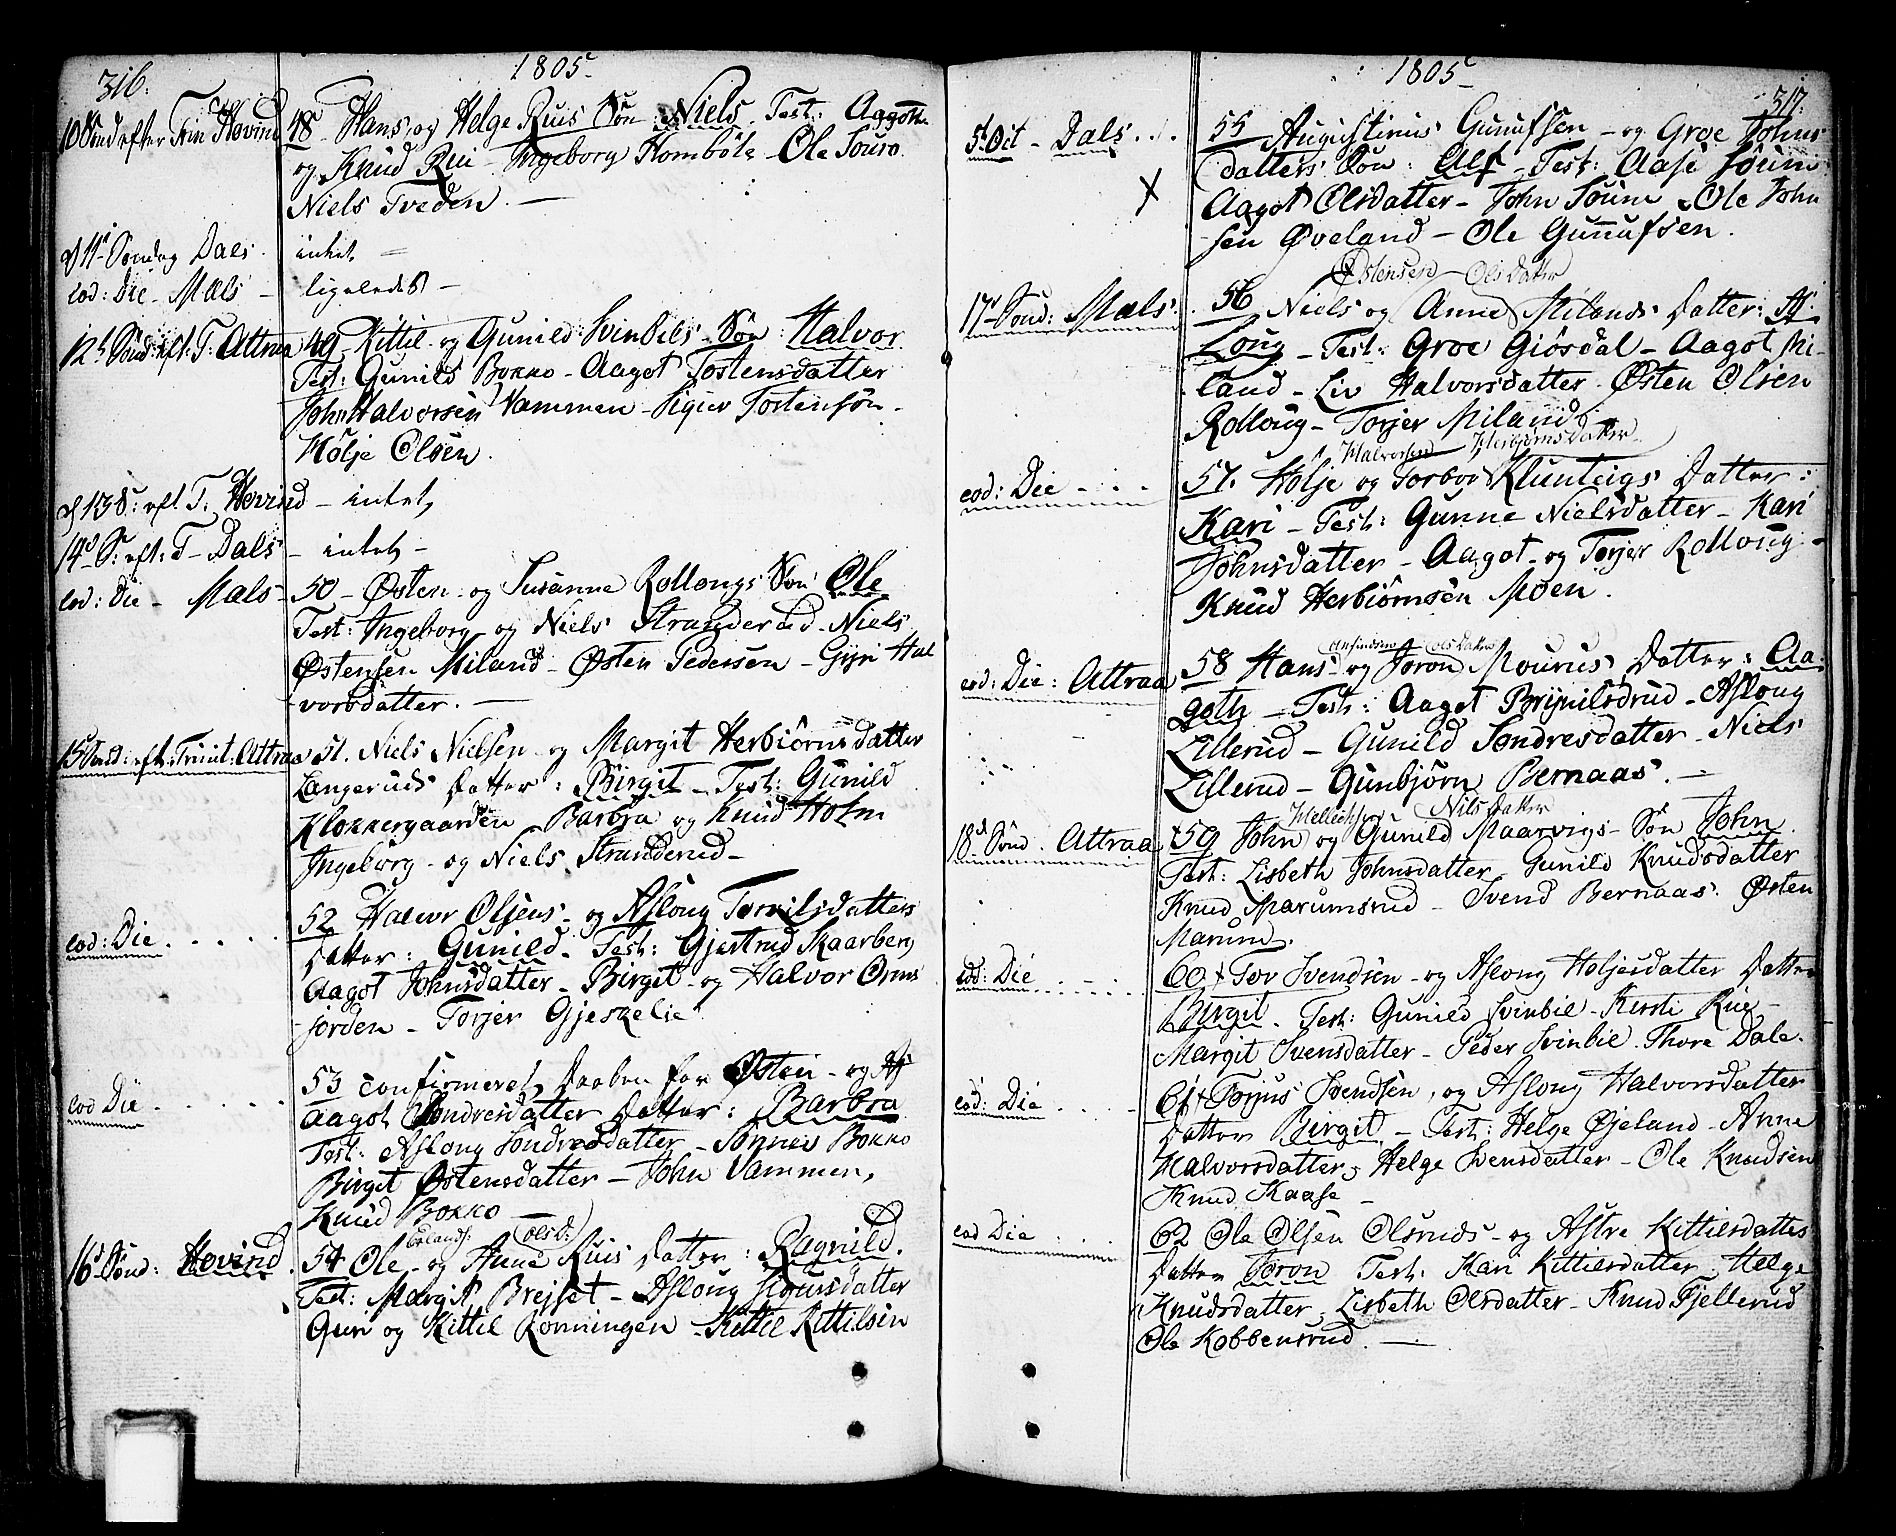 316.
1805
10 Sönd efter Trin Hovind
48 Hans og Helge Ruis Søn Niels. Test: Aagoth
og Knud Rui - Ingeborg Homböle - Ole Souro
Niels Tveden. -
d 11 Söndag Dals.
intet -
eod: Die - Mæls -
ligeledes -
12t Sönd: eft: T: Attraa
49 Kittil og Gunild Svinbils - Søn: Halvor
Test: Gunild Bokko - Aagot Tostensdatter
John Halvorsen Vammen - Sigur Tostensön.
Hölje Olsen.
d 13 S: eft T: Hovind
- intet,
14d S: eft: T - Dals -
intet -
eod: Die - Mæls -
50 - Østen og Susanne Rollougs Søn Ole
Test: Ingeborg og Niels Stranderud - Niels
Østensen Miland - Østen Pedersen - Gyri Hal
vorsdatter. -
15 Sönd: eft: Trinit: Attraa
51. Niels Nielsen og Margit Herbiörnsdatter
Langeruds Datter: Birgit - Test: Gunild
Klokkergaarden Barbra og Knud Holm
Ingeborg - og Niels Stranderud -
eod: Die . . . .
52 Halvor Olsens - og Aslong Torgilsdatters
Datter: Gunild - Test: Gjertrud Skaarberg
Aagot Johnsdatter - Birget - og Halvor Orms
jorden - Torjer Gjeskelie
eod Die . . . .
53 confirmeret Daaben for Østen - og
Aagot Sondresdatter Datter: Barbra
Test: Aslong Sondresdatter - Sonnev Bokko
Birget Østensdatter - John Vammen,
Knud Bokko -
Erlands: Olsd:
16d Sønd: Hovind.
54 Ole - og Anne Ruis Datter: Ragnild.
Test: Margit Brejset - Aslong Sjoursdatter
Guri og Kittil Rönningen - Kittil Kittilsen
1805
317.
5t Oct - Dals . .
55 Augustinus Gunufsen - og Groe Johns
datters Søn: Alf - Test: Aase Söum
X
Aagot Olsdatter - John Söum - Ole John
sen Øveland - Ole Gunufsen.
Østensen - Olsdatter
17d Sönd: Mæls:
56 Niels og Anne Milands Datter: As
Loug - Test: Groe Giösdal - Aagot Mi-
land - Liv Halvorsdatter. Østen Olsen
Rolloug - Torjer Miland
Halvorsen Herbjørnsdatter
eod: Die - . .
57. Holje og Torbor Klunteigs Datter:
Kari - Test: Gunne Nielsdatter - Kari
Johnsdatter - Aagot - og Torjer Rolloug -
Knud Herbiörnsen Moen.
Anfindsen Olsdatter
eod: Die: Attraa
58 Hans og Joron Mourus Datter: Aa-
goth - Test: Aagot Brynilsdrud - Aslong
Lillerud - Gunild Sondresdatter - Niels
Lillerud - Gunbjörn Bernaas. -
Nilsdatter
18d Sønd. Attraa
59 John og Gunild Maarvigs - Søn John
Test: Lisbeth Johnsdatter Gunild Knudsdatter
Knud Marumsrud - Svend Bernaas. Østen
Marum.
eod: Die
60 + Tov Svendsen - og Aslong Holjesdatter Datter
Birgit. Test: Gunild Svinbil - Kirsti Rue -
Margit Svensdatter - Peder Svinbil - Thore Dale.
eod: Die . . . .
61 + Torjus Svendsen, og Aslong Halvorsdatter
Datter Birgit - Test: Helge Øjeland - Anne
Halvorsdatter, Helge Svensdatter - Ole Knudsen
Knud Kaase -
eod Die . . . .
62 Ole Olsen Olsruds - og Astre Kittilsdatter
Datter Joron Test: Kari Kittilsdatter. Helge
Knudsdatter. Lisbeth Olsdatter - Knud Fjellerud
Ole Kobbensrud. -